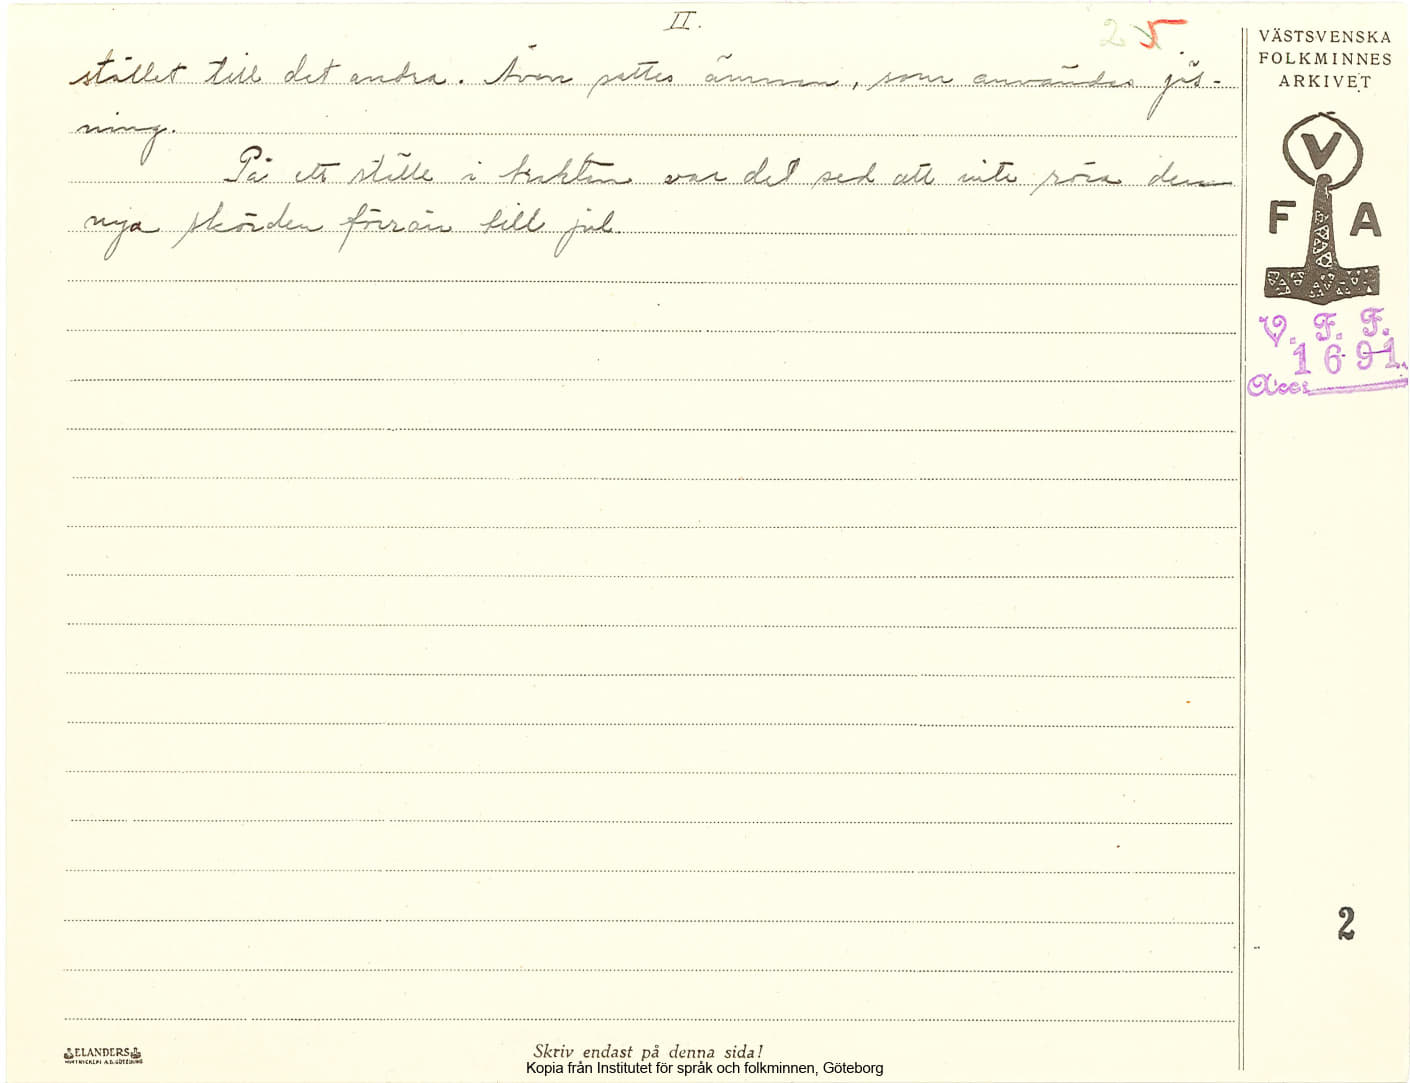 II.
25
stället till det andra. Även sattes ämnen, som användes jäs-
ning.
På ett ställe i trakten var det sed att inte röra den
nya skörden förrän till jul.
VÄSTSVENSKA
FOLKMINNES
ARKIVET
V
F A
V. F. F.
1691.
Acc:
2
ELANDERS
BOKTRYCKERI A.B. GÖTEBORG
Skriv endast på denna sida!
Kopia från Institutet för språk och folkminnen, Göteborg